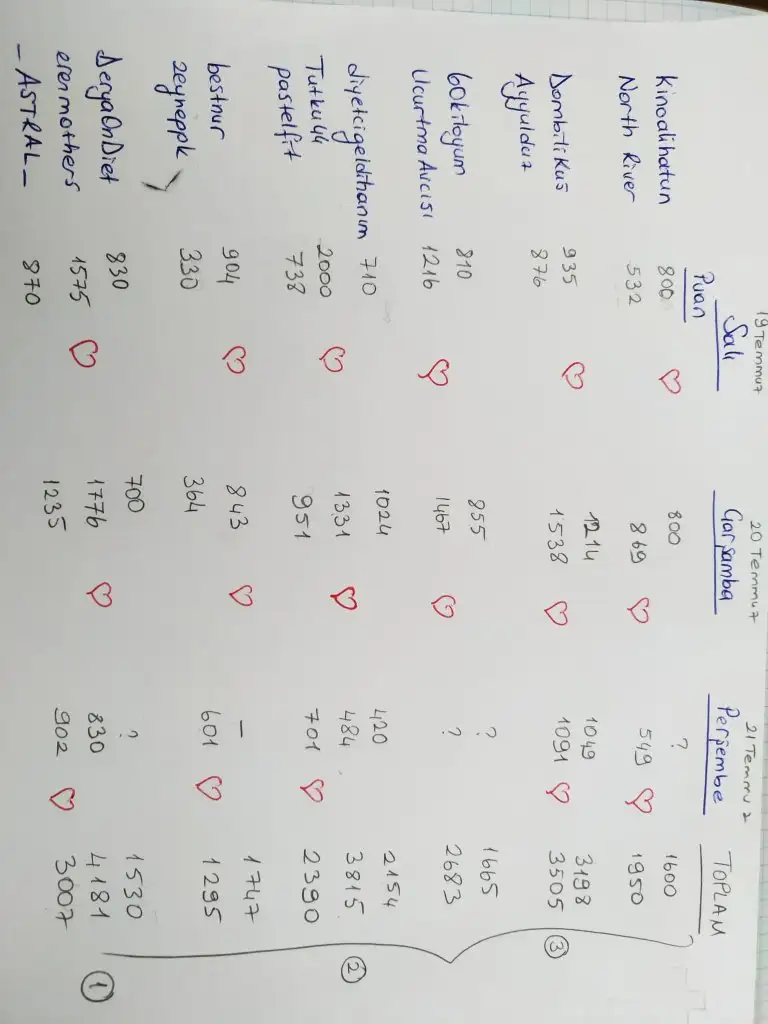 19 Temmuz 20 Temmuz 21 Temmuz
Salı Çarşamba Perşembe TOPLAM
Puan
kinoalihatun 800 800 ? 1600
North River 532 869 549 1950
DombiliKuş 935 1214 1049 3198
Ayyulduz 876 1538 1091 3505
③
60kiloyum 810 855 ? 1665
UcurtmaAvcısı 1216 1467 ? 2683
diyetcigeldihanım 710 1024 420 2154
Tutku44 2000 1331 484 3815
pastelfit 738 951 701 2390
②
bestnur 904 843 – 1747
zeyneppk 330 364 601 1295
DeryaOnDiet 830 700 ? 1530
erenmothers 1575 1776 830 4181
-ASTRAL- 870 1235 902 3007
①